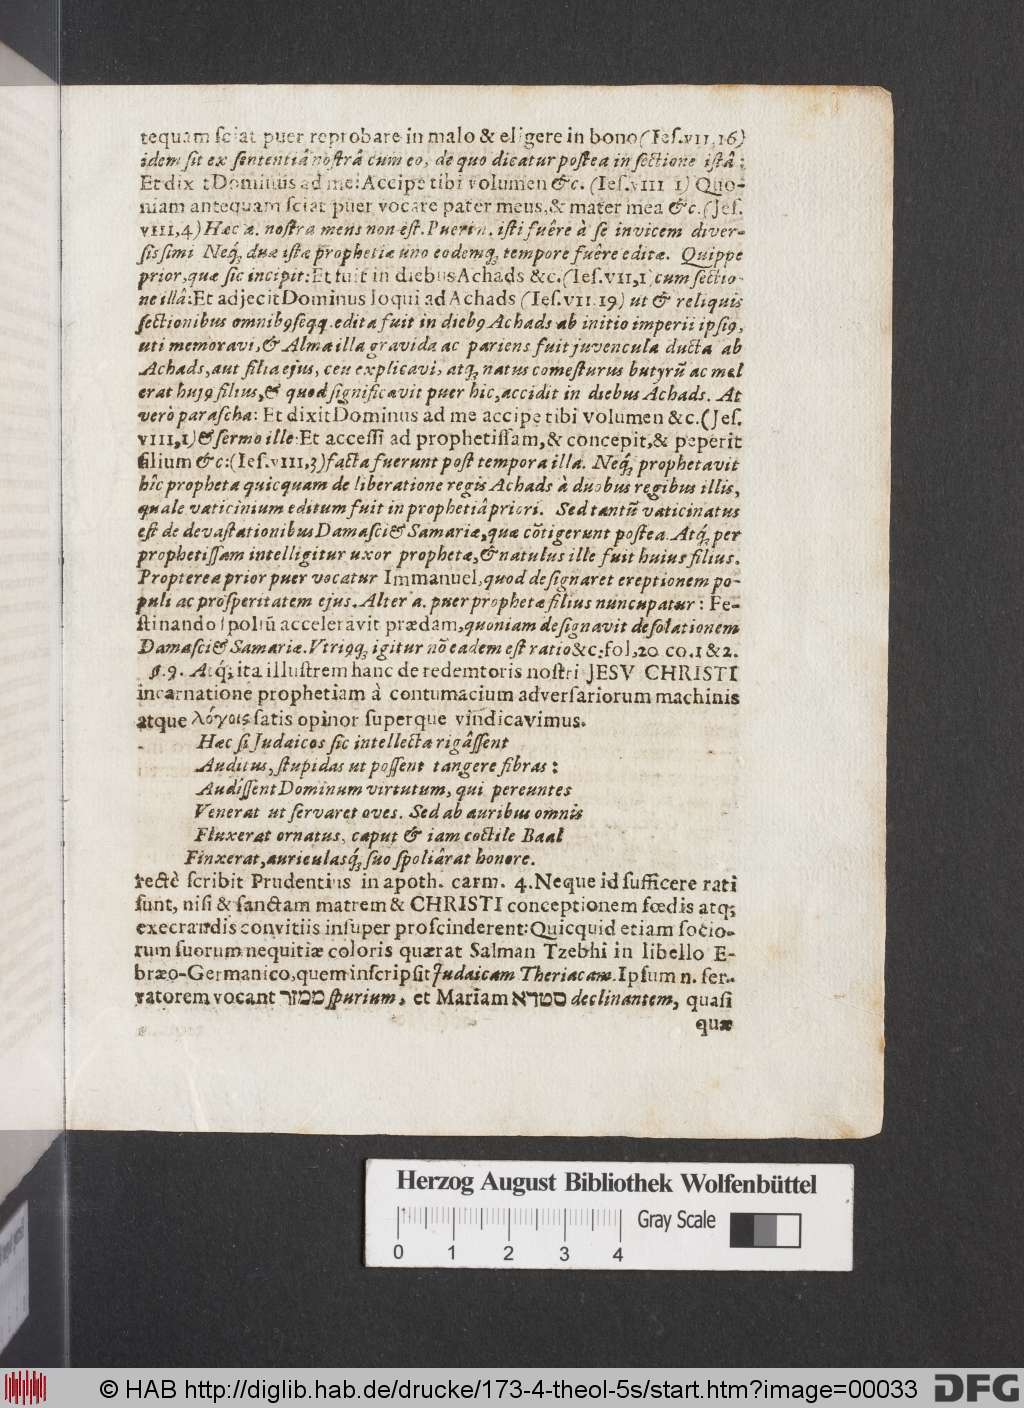 tequam sciat puer reprobare in malo & eligere in bono (Ies.VII,16)
idem sit ex sententiâ nostrâ cum eo, de quo dicatur postea in sectione istâ:
Et dixit Dominus ad me: Accipe tibi volumen &c. (Ies.VIII 1) Quo-
niam antequam sciat puer vocare pater meus, & mater mea &c. (Jes.
VIII,4) Hæc a. nostra mens non est. Pueri n. isti fuêre à se invicem diver-
sissimi Neq; duæ istæ prophetiæ uno eodemq; tempore fuêre editæ. Quippe
prior, quæ sic incipit: Et fuit in diebus Achads &c. (Ies.VII,1) cum sectio-
ne illâ: Et adjecit Dominus loqui ad Achads (Ies.VII.19) ut & reliquis
sectionibus omnibꝯ seqq. edita fuit in diebꝯ Achads ab initio imperii ipsiꝯ,
uti memoravi, & Alma illa gravida ac pariens fuit juvencula ducta ab
Achads, aut filia ejus, ceu explicavi, atq; natus comesturus butyrũ ac mel
erat hujꝯ filius, & quod significavit puer hic, accidit in diebus Achads. At
verò parascha: Et dixit Dominus ad me accipe tibi volumen &c. (Jes.
VIII,1) & sermo ille: Et accessi ad prophetissam, & concepit, & peperit
filium &c: (Ies.VIII,3) facta fuerunt post tempora illa. Neq; prophetavit
hîc propheta quicquam de liberatione regis Achads à duobus regibus illis,
quale vaticinium editum fuit in prophetiâ priori. Sed tantũ vaticinatus
est de devastationibus Damasci & Samariæ, quæ cõtigerunt postea. Atq; per
prophetissam intelligitur uxor prophetæ, & natulus ille fuit huius filius.
Propterea prior puer vocatur Immanuel, quod designaret ereptionem po-
puli ac prosperitatem ejus. Alter a. puer prophetæ filius nuncupatur: Fe-
stinando spoliũ acceleravit prædam, quoniam designavit desolationem
Damasci & Samariæ. Vtriꝯq; igitur nõ eadem est ratio &c: fol. 20 co. 1 & 2.
§. 9. Atq; ita illustrem hanc de redemtoris nostri JESV CHRISTI
incarnatione prophetiam à contumacium adversariorum machinis
atque λόγοις satis opinor superque vindicavimus.
Hæc si Judaicos sic intellecta rigâssent
Auditus, stupidas ut possent tangere fibras:
Audîssent Dominum virtutum, qui pereuntes
Venerat ut servaret oves. Sed ab auribus omnis
Fluxerat ornatus, caput & iam coctile Baal
Finxerat, auriculasq; suo spoliârat honore.
rectè scribit Prudentius in apoth. carm. 4. Neque id sufficere rati
sunt, nisi & sanctam matrem & CHRISTI conceptionem fœdis atq;
execrandis convitiis insuper proscinderent: Quicquid etiam socio-
rum suorum nequitiæ coloris quærat Salman Tzebhi in libello E-
bræo-Germanico, quem inscripsit Judaicam Theriacam. Ipsum n. ser-
vatorem vocant ממזר spurium, et Mariam סטרא declinantem, quasi
quæ
Herzog August Bibliothek Wolfenbüttel
Gray Scale
0 1 2 3 4
© HAB http://diglib.hab.de/drucke/173-4-theol-5s/start.htm?image=00033
DFG